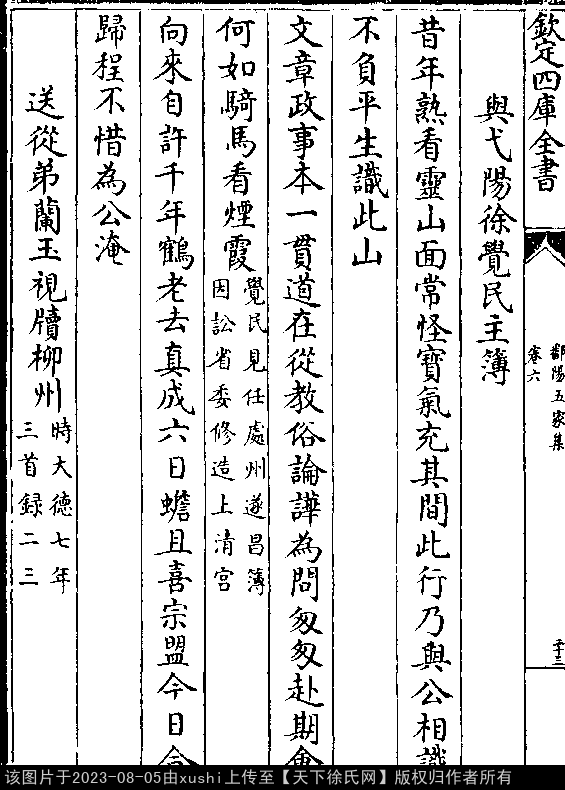 欽定四庫全書
鄱陽五家集
卷六
二十三
與弋陽徐覺民主簿
昔年熟看靈山面常怪寶氣充其間此行乃與公相識
不負平生識此山
文章政事本一貫道在從教俗論譁為問匆匆赴期會
何如騎馬看煙霞覺民見任處州遂昌簿
因訟省委修造上清宮
向來自許千年鶴老去真成六日蟾且喜宗盟今日合
歸程不惜為公淹
送從弟蘭玉視牘柳州時大德七年
三首録二三
该图片于2023-08-05由xushi上传至【天下徐氏网】版权归作者所有